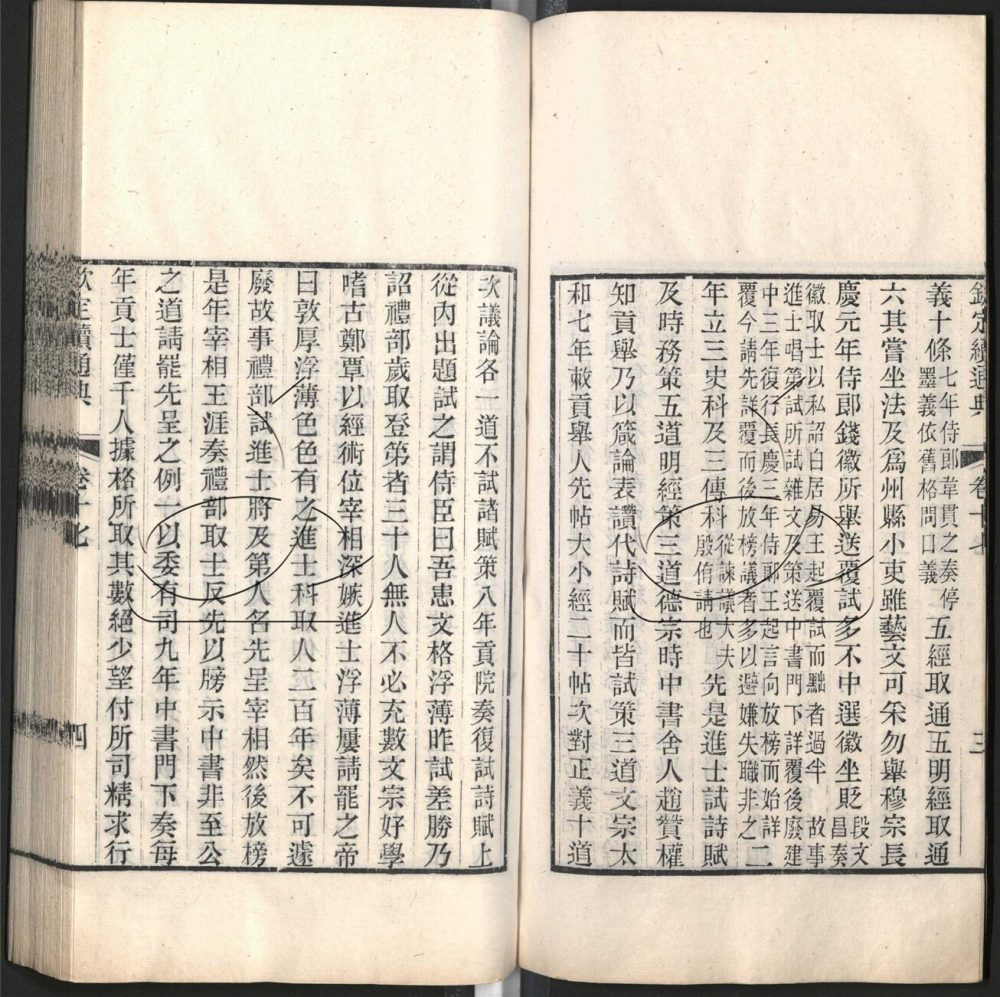 欽定續通典 卷十七 三
義十條七年侍郎韋貫之奏停墨義依舊格問口義五經取通五明經取通
六其嘗坐法及爲州縣小吏雖藝文可采勿舉穆宗長
慶元年侍郎錢徽所舉送覆試多不中選徽坐貶段文昌奏
徽取士以私詔白居易王起覆試而黜者過半故事
進士唱第試所試雜文及策送中書門下詳覆後廢建
中三年復行長慶三年侍郎王起言向放榜而始詳
覆今請先詳覆而後放榜議者多以避嫌失職非之二
年立三史科及三傳科從諫議大夫殷侑請也先是進士試詩賦
及時務策五道明經策三道德宗時中書舍人趙贊權
知貢舉乃以箴論表讚代詩賦而皆試策三道文宗太
和七年敕貢舉人先帖大小經二十帖次對正義十道
次議論各一道不試諸賦策八年貢院奏復試詩賦上
從內出題試之謂侍臣曰吾患文格浮薄昨試差勝乃
詔禮部歲取登第者三十人無人不必充數文宗好學
嗜古鄭覃以經術位宰相深嫉進士浮薄屢請罷之帝
曰敦厚浮薄色色有之進士科取人二百年矣不可遽
廢故事禮部試進士將及第人名先呈宰相然後放榜
是年宰相王涯奏禮部取士反先以牓示中書非至公
之道請罷先呈之例一以委有司九年中書門下奏每
年貢士僅千人據格所取其數絕少望付所司精求行
欽定續通典 卷十七 四